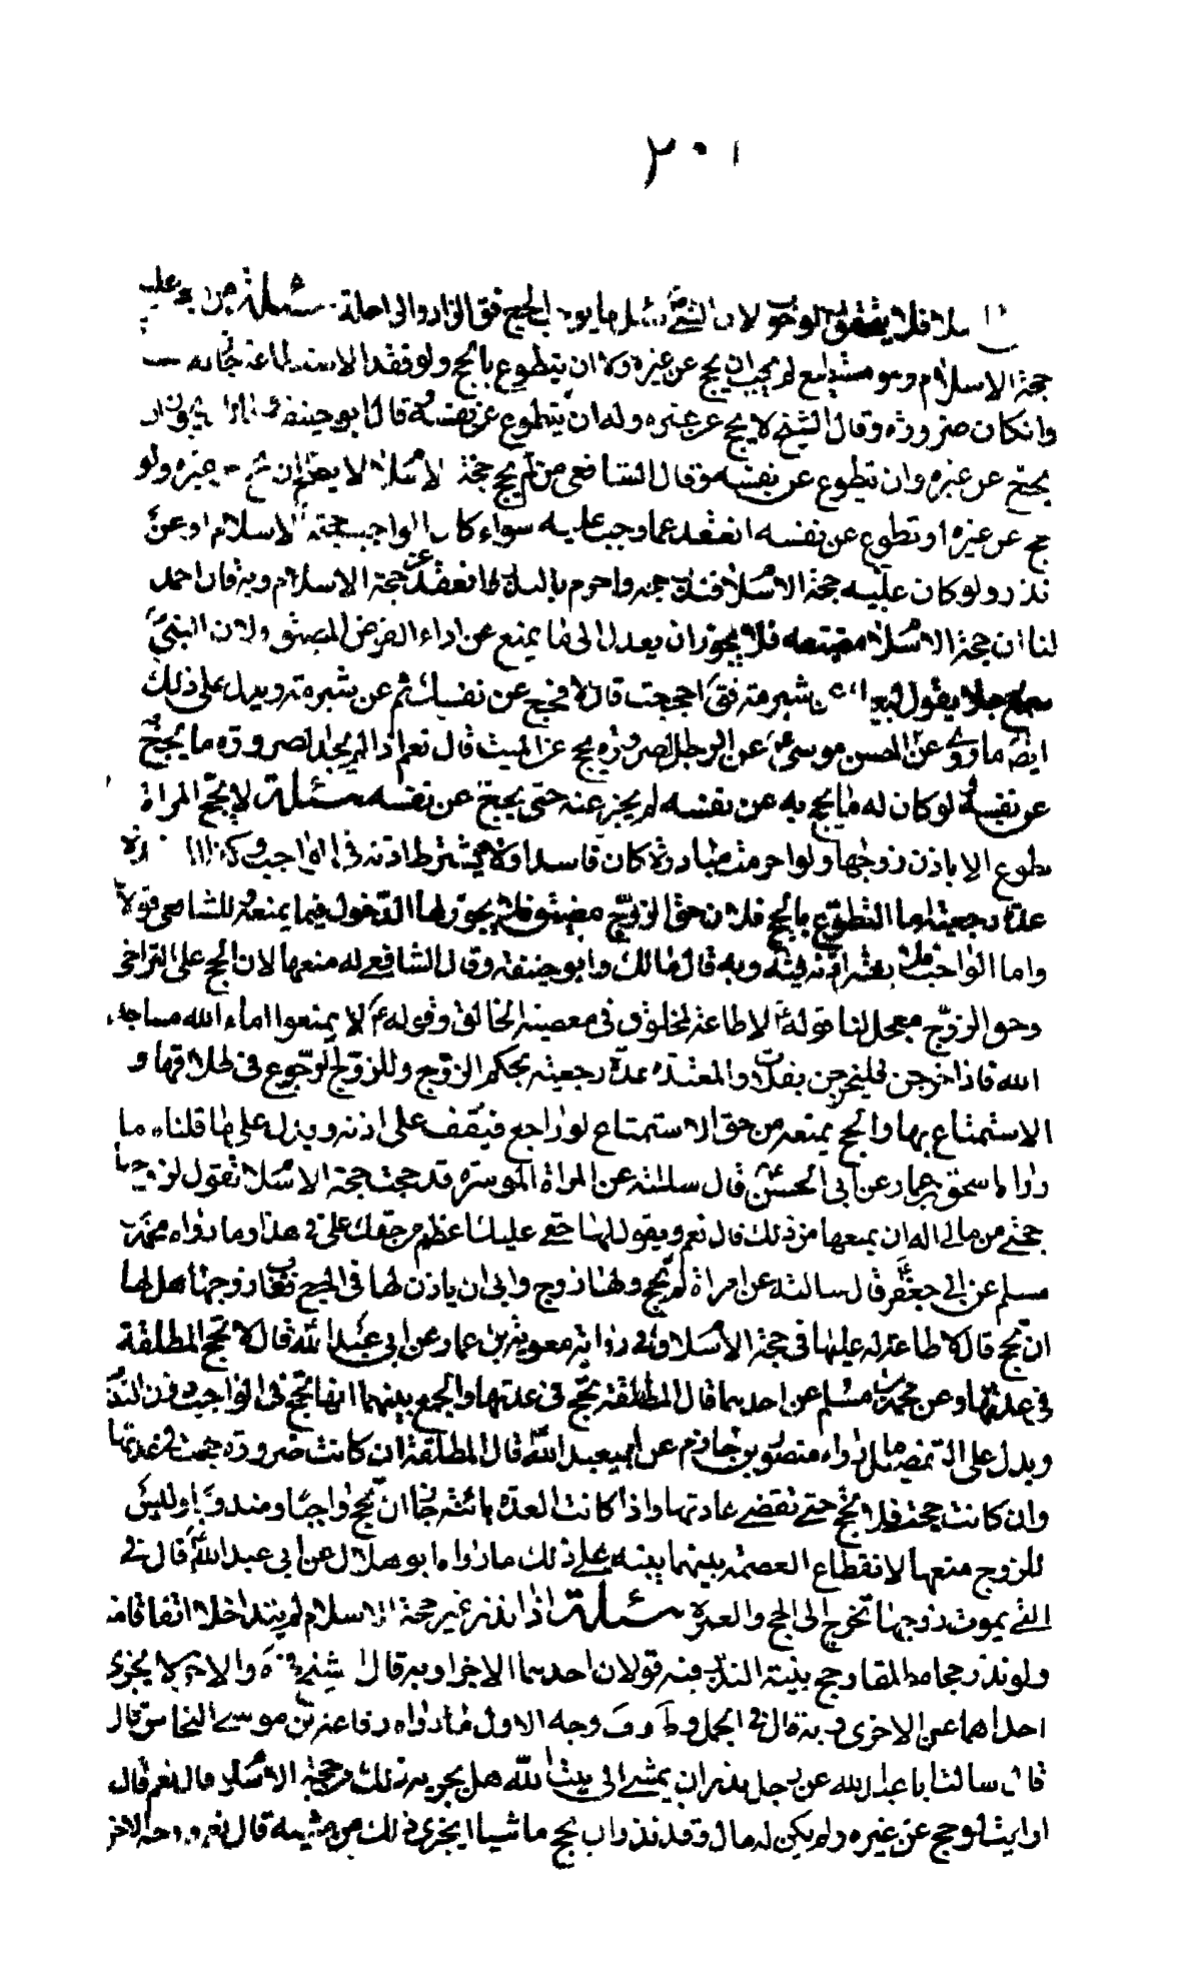 ٢٠١
فلا يتحقق الوجوب لان الشرط الحج فى الزاد والراحلة مسئلة من عليه
حجة الاسلام وهو مستطيع لم يجب ان يحج عن غيره ولا ان يتطوع بالحج ولو فقد الاستطاعة جاز له
وانكان صرورة وقال الشيخ لا يحج عن غيره وله ان يتطوع عن نفسه قال ابو حنيفة يجوز ان
يحج عن غيره وان تطوع عن نفسه وقال الشافعى من لم يحج حجة الاسلام لا يصح ان يحج عن غيره ولو
حج عن غيره او تطوع عن نفسه انعقد عما وجب عليه سواء كان الواجب حجة الاسلام او عن
نذر ولو كان عليه حجة الاسلام فنذر حجه واحرم بالنذر انعقد عن حجة الاسلام وبه قال احمد
لنا ان حجة الاسلام فلا يجوز ان يعدل الى ما يمنع عن اداء الفرض المضيق ولان النبى
سمع رجلا يقول لبيك عن شبرمة فقال احججت قال لا فحج عن نفسك ثم عن شبرمة ويدل على ذلك
ايضا ما روى عن الحسن موسى عن الرجل الصرورة يحج عن الميت قال نعم اذا لم يجد الصرورة ما يحج
عن نفسه لو كان له ما يحج به عن نفسه لم يجز عنه حتى يحج عن نفسه مسئلة لا يحج المراة
تطوع الا باذن زوجها ولو احرمت مبادرة كان فاسدا ولا يشترط اذنه فى الواجب وكذا
عدة رجعية اما التطوع بالحج فلان حق الزوج مضيق فلا يجوز لها الدخول فيما يمنعه للشافعى قولان
واما الواجب فلا يعتبر اذنه فيه وبه قال مالك وابو حنيفة وقال الشافعى له منعها لان الحج على التراخى
وحق الزوج معجل لنا قوله لا طاعة لمخلوق فى معصية الخالق وقوله لا يمنعوا اماء الله مساجد
الله فاذا خرجن فليخرجن تفلات والمعتدة عدة رجعية بحكم الزوج وللزوج الرجوع فى طلاقها و
الاستمتاع بها والحج يمنعه من حق الاستمتاع لو راجع فيقف على اذنه ويدل على ما قلناه ما
رواه اسحق بن عمار عن ابى الحسن قال سالته عن المراة الموسرة قد حجت حجة الاسلام تقول لزوجها
احجنى من مالى اله ان يمنعها من ذلك قال نعم ويقول لها حقى عليك اعظم من حقك على فى هذا وما رواه محمد بن
مسلم عن ابى جعفر قال سالته عن امراة لم تحج ولها زوج وابى ان ياذن لها فى الحج فغاب زوجها هل لها
ان تحج قال لا طاعة له عليها فى حجة الاسلام وفى رواية معوية بن عمار عن ابى عبد الله قال لا تحج المطلقة
فى عدتها وعن محمد بن مسلم عن احدهما قال المطلقة تحج فى عدتها والجمع بينهما انها تحج فى الواجب دون الندب
ويدل على التفصيل ما رواه منصور بن حازم عن ابى عبد الله قال المطلقة ان كانت صرورة حجت فى عدتها
وان كانت حجت فلا تحج حتى تقضى عدتها واذا كانت العدة بائنة جاز ان تحج واجبا ومندوبا وليس
للزوج منعها لانقطاع العصمة بينهما ينبه على ذلك ما رواه ابو هلال عن ابى عبد الله قال فى
التى يموت زوجها تخرج الى الحج والعمرة مسئلة اذا نذر غير حجة الاسلام لم يتداخلا اتفاقا
ولو نذر حجا مطلقا وحج بنية النذر ففيه قولان احدهما الاجزاء وبه قال الشيخ فى والاخر لا يجزى
احداهما عن الاخرى وبه قال فى الجمل و وجه الاول ما رواه رفاعة بن موسى النخاس قال
قال سالت ابا عبد الله عن رجل نذر ان يمشى الى بيت الله هل يجزيه ذلك من حجة الاسلام قال نعم قال
ارايت لو حج عن غيره ولم يكن له مال وقد نذر ان يحج ماشيا ايجزى ذلك من مشيه قال نعم